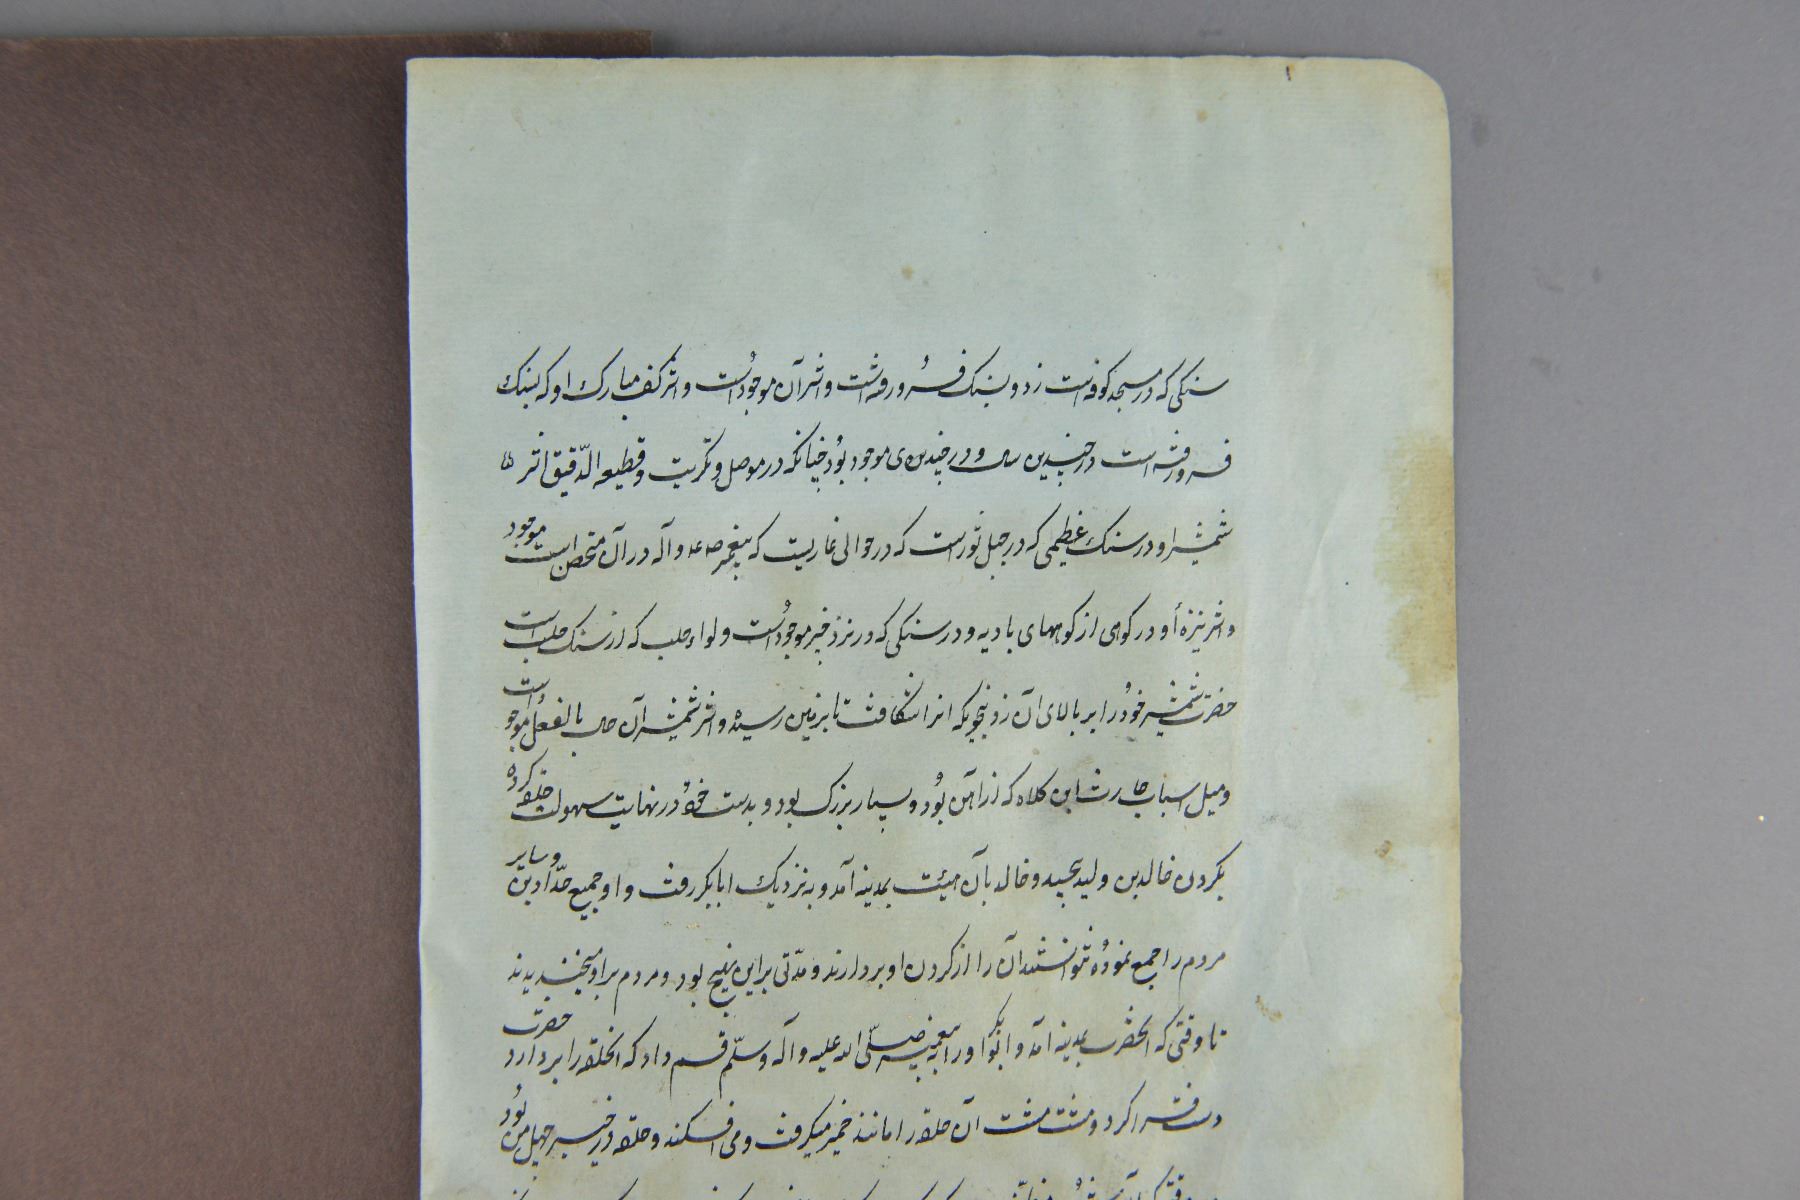 سنکی که در مسجد کوفه است زد و بسنک فرو رفته است و اثر آن موجود است و اثر کف مبارک او که بسنک
فرو رفته است در چندین سال و در چندین موجود بود چنانکه در موصل و تکریت و قطیعه الدّقیق اثر
شمشیر او در سنک عظیمی که در جبل ثور است که در حوالی غاریست که پیغمبر ص ع و آله در آن متحصن است موجود
و اثر نیزه او در کوهی از کوههای بادیه و در سنکی که در نزد خیبر موجود است و لواء حلب که از سنک حلب است
حضرت شمشیر خود را بر بالای آن زد بنحویکه انرا شکافت تا بزمین رسیده و اثر شمشیر آن حال بالفعل موجود است
و میل اسباب حارث ابن کلاه که از آهن بود و بسیار بزرک بود و بدست خود در نهایت سهولت حلقه کرده
بکردن خالد بن ولید پیچید و خالد بآن هیئت بمدینه آمد و به نزدیک ابابکر رفت و او جمیع حدّادین و سایر
مردم را جمع نموده نتوانستند آن را از کردن او بردارند و مدّتی براین نهج بود و مردم بر او میخندیدند
تا وقتی که انحضرت بمدینه آمد و ابوبکر او را به پیغمبر صلّی الله علیه و آله و سلّم قسم داد که انحلقه را بردارد حضرت
دست فرا کرد و مشت مشت آن حلقه را مانند خمیر میکرفت و می افکند و حلقه در خیبر چهل من بود